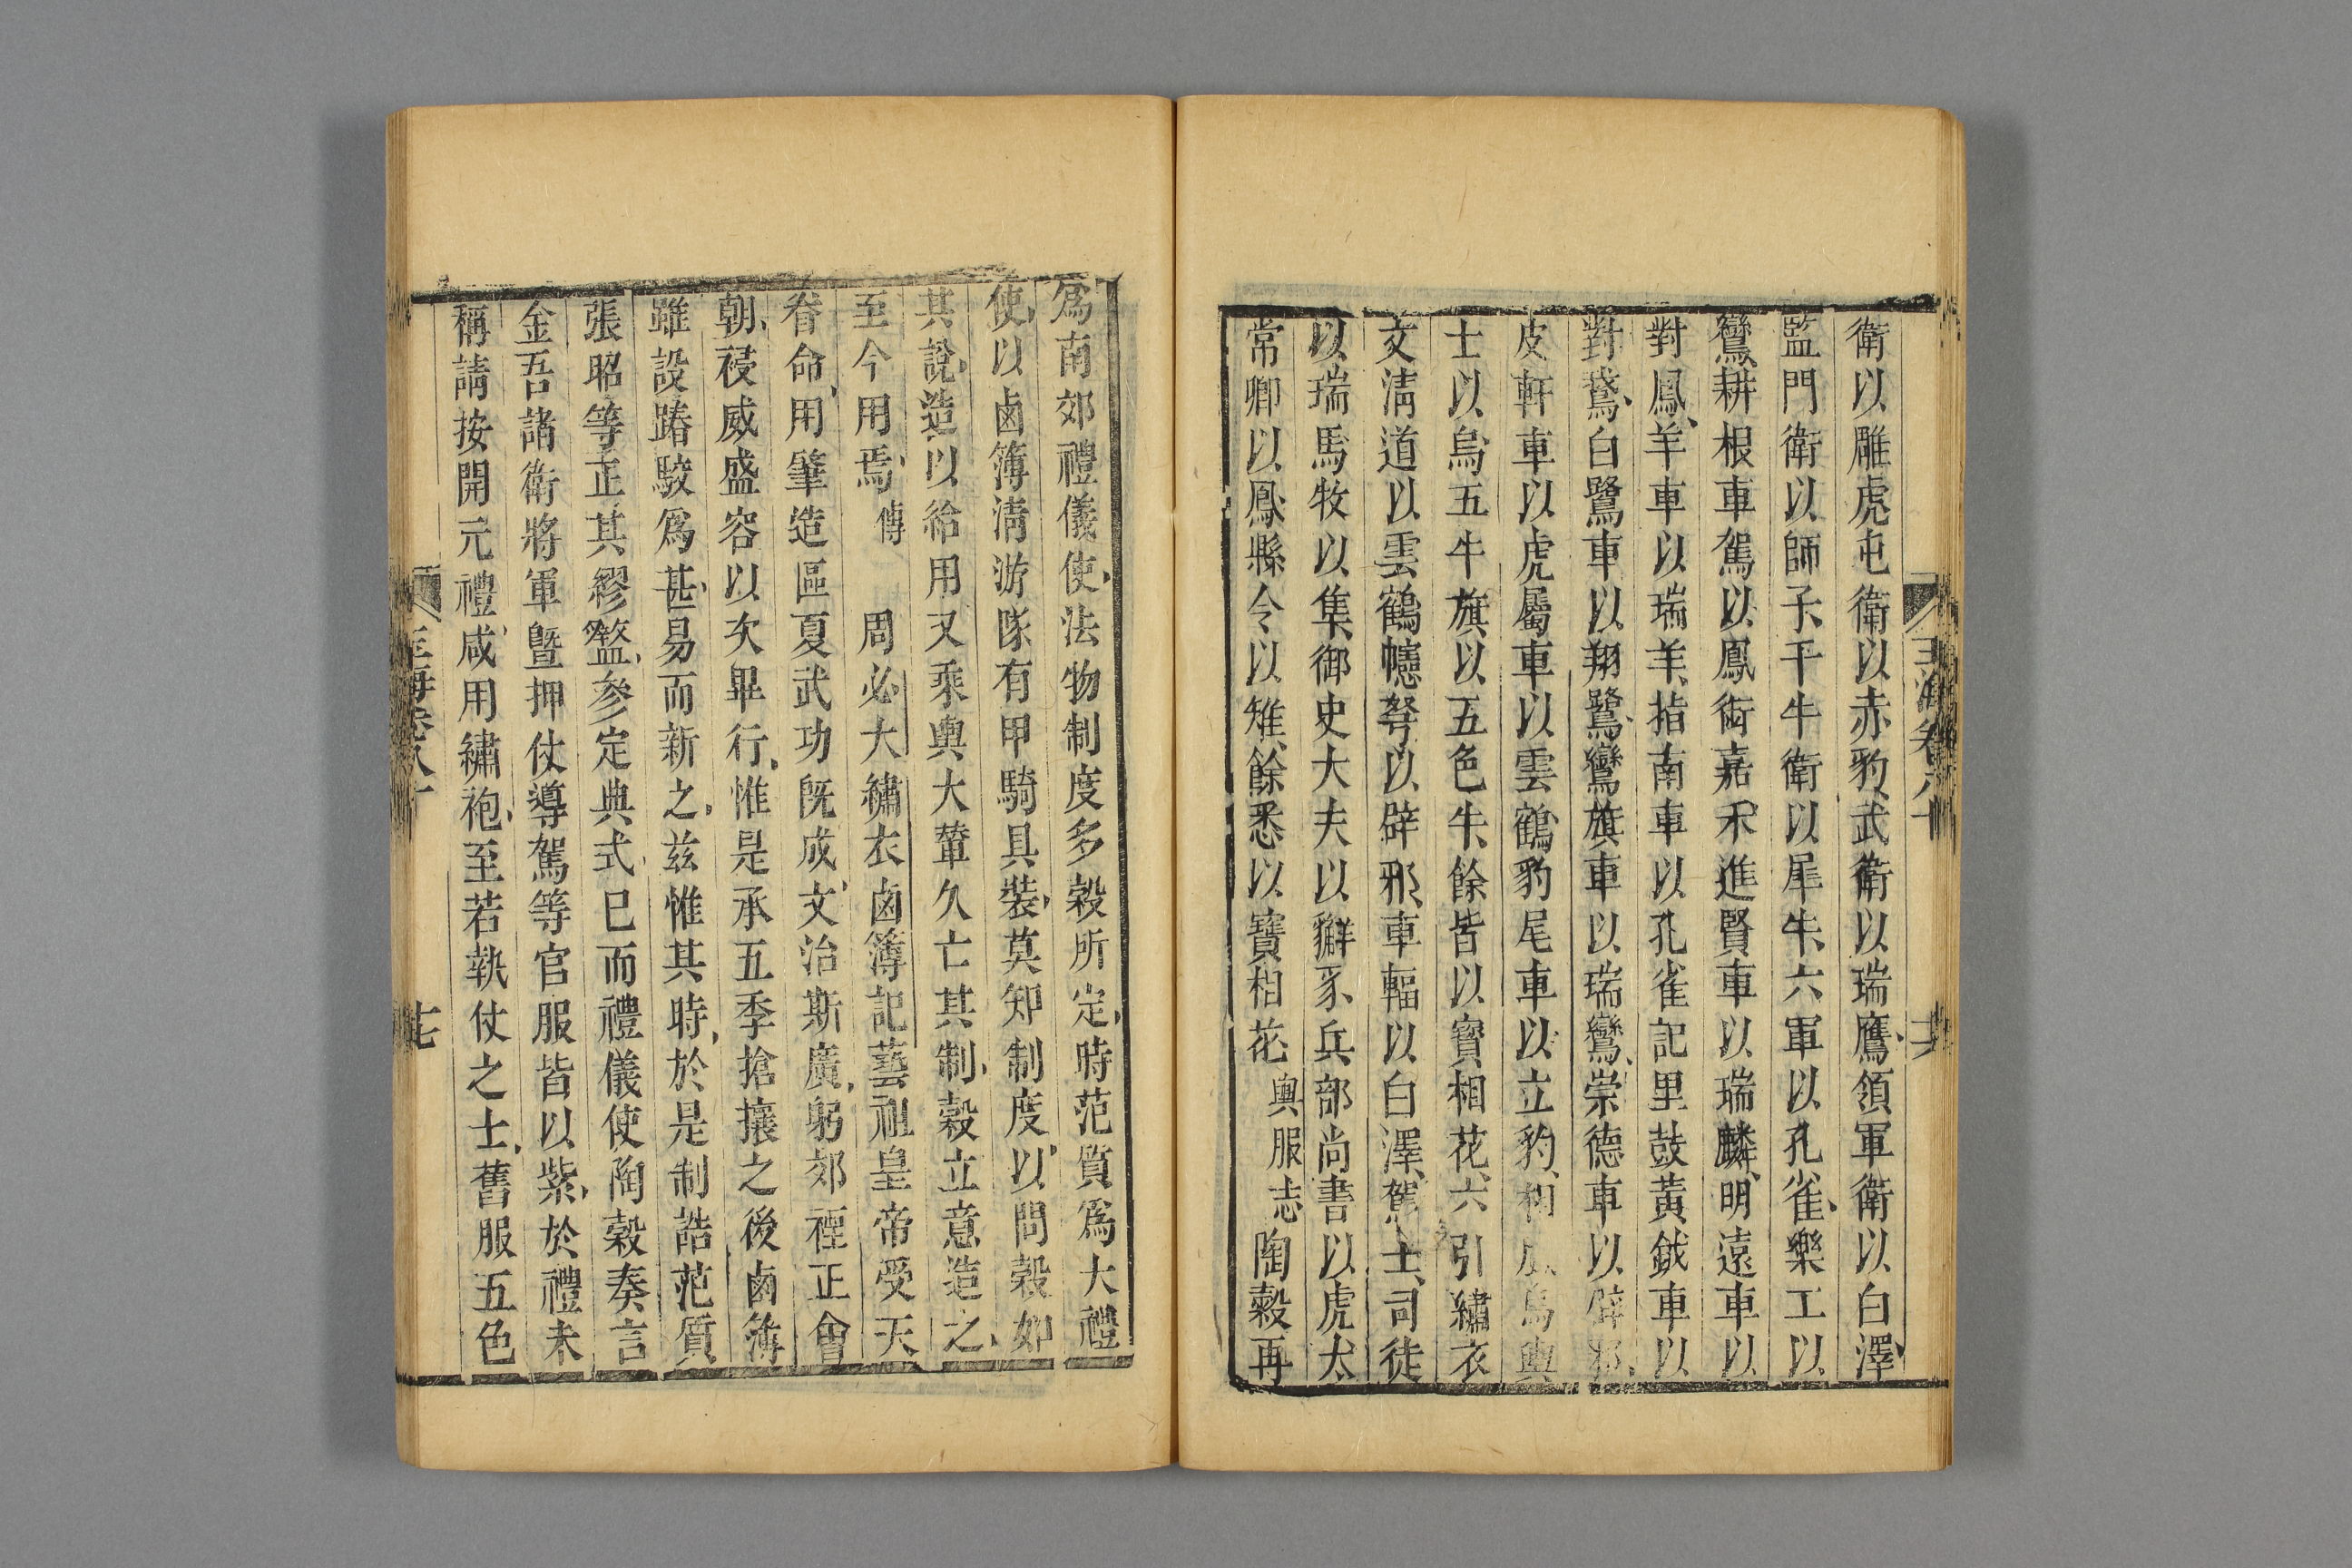 玉海卷八十
衛以雕虎屯衛以赤豹武衛以瑞鷹領軍衛以白澤
監門衛以師子千牛衛以犀牛六軍以孔雀樂工以
鸞耕根車駕以鳳銜嘉禾進賢車以瑞麟明遠車以
對鳳羊車以瑞羊指南車以孔雀記里鼓黃鉞車以
對鵞白鷺車以翔鷺鸞旗車以瑞鸞崇德車以辟邪
皮軒車以虎屬車以雲鶴豹尾車以立豹相風烏輿
士以烏五牛旗以五色牛餘皆以寶相花六引繡衣
文淸道以雲鶴幰弩以辟邪車輻以白澤駕士司徒
以瑞馬牧以隼御史大夫以獬豸兵部尚書以虎太
常卿以鳳縣令以雉餘悉以寶相花輿服志陶穀再
爲南郊禮儀使法物制度多穀所定時范質爲大禮
使以鹵簿淸游隊有甲騎具裝莫知制度以問穀如
其說造以給用又乘輿大輦久亡其制穀立意造之
至今用焉傳 周必大繡衣鹵簿記藝祖皇帝受天
眷命用肇造區夏武功旣成文治斯廣躬郊禋正會
朝祲威盛容以次畢行惟是承五季搶攘之後鹵簿
雖設踳駮爲甚易而新之茲惟其時於是制誥范質
張昭等正其繆盭參定典式巳而禮儀使陶穀奏言
金吾諸衛將軍曁押仗導駕等官服皆以紫於禮未
稱請按開元禮咸用繡袍至若執仗之士舊服五色
玉海卷八十